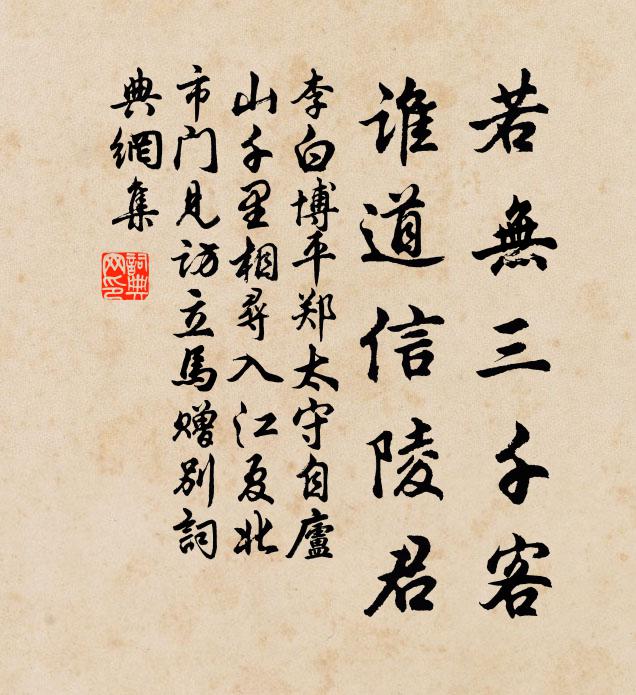 若無三千客
谁道信陵君
李白博平郑太守自廬
山千里相尋入江夏北
市门见访立馬赠别詞
典網集
詞典
网印